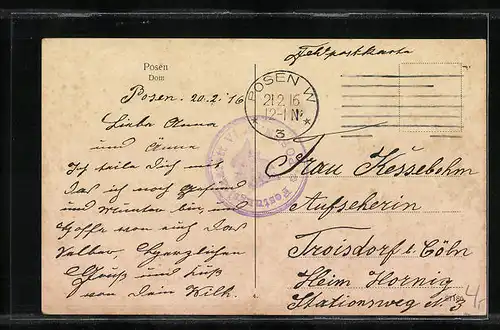 Posen
Dom
Feldpostkarte
POSEN W
21.2.16
12-1 N
* 3 *
Posen. 20.2.16
Liebe Anna
und Änne
Ich teile Dich mit
das ich noch gesund
und munter bin, und
hoffe von euch das
selbe, Herzlichen
Gruß und Kuß
von Dein Wilh.
Frau Kesselsohm
Aufseherin
Troisdorf b. Cöln
Heim Hornig
Stationsweg 3